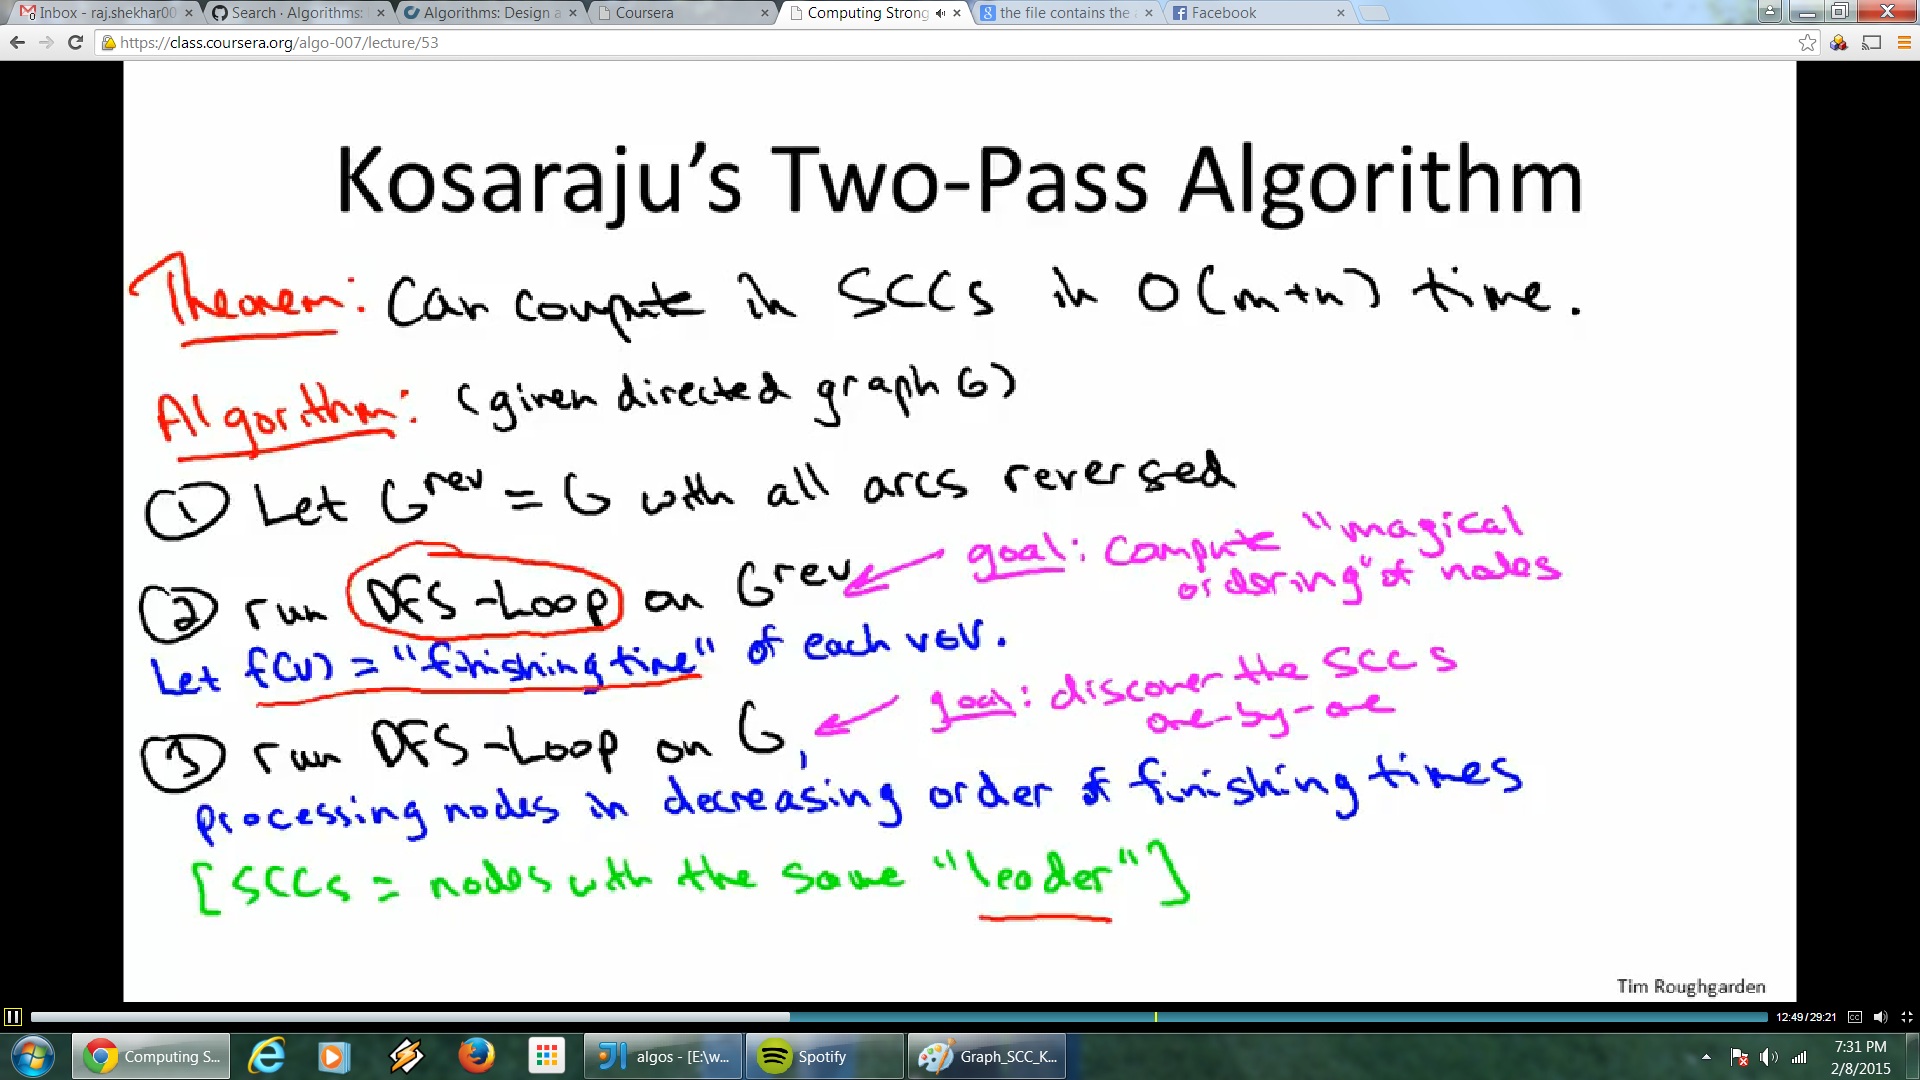 Inbox - raj.shekhar00
Search · Algorithms:
Algorithms: Design a
Coursera
Computing Strong
the file contains the
Facebook
https://class.coursera.org/algo-007/lecture/53
Kosaraju's Two-Pass Algorithm
Theorem: Can compute in SCCs in O(m+n) time.
Algorithm: (given directed graph G)
① Let G^rev = G with all arcs reversed
goal: compute "magical
ordering" of nodes
② run DFS-Loop on G^rev
Let f(v) = "finishing time" of each v∈V.
goal: discover the SCCs
one-by-one
③ run DFS-Loop on G,
processing nodes in decreasing order of finishing times
[SCCs = nodes with the same "leader"]
Tim Roughgarden
12:49/29:21
CC
Computing S...
algos - [E:\w...
Spotify
Graph_SCC_K...
7:31 PM
2/8/2015